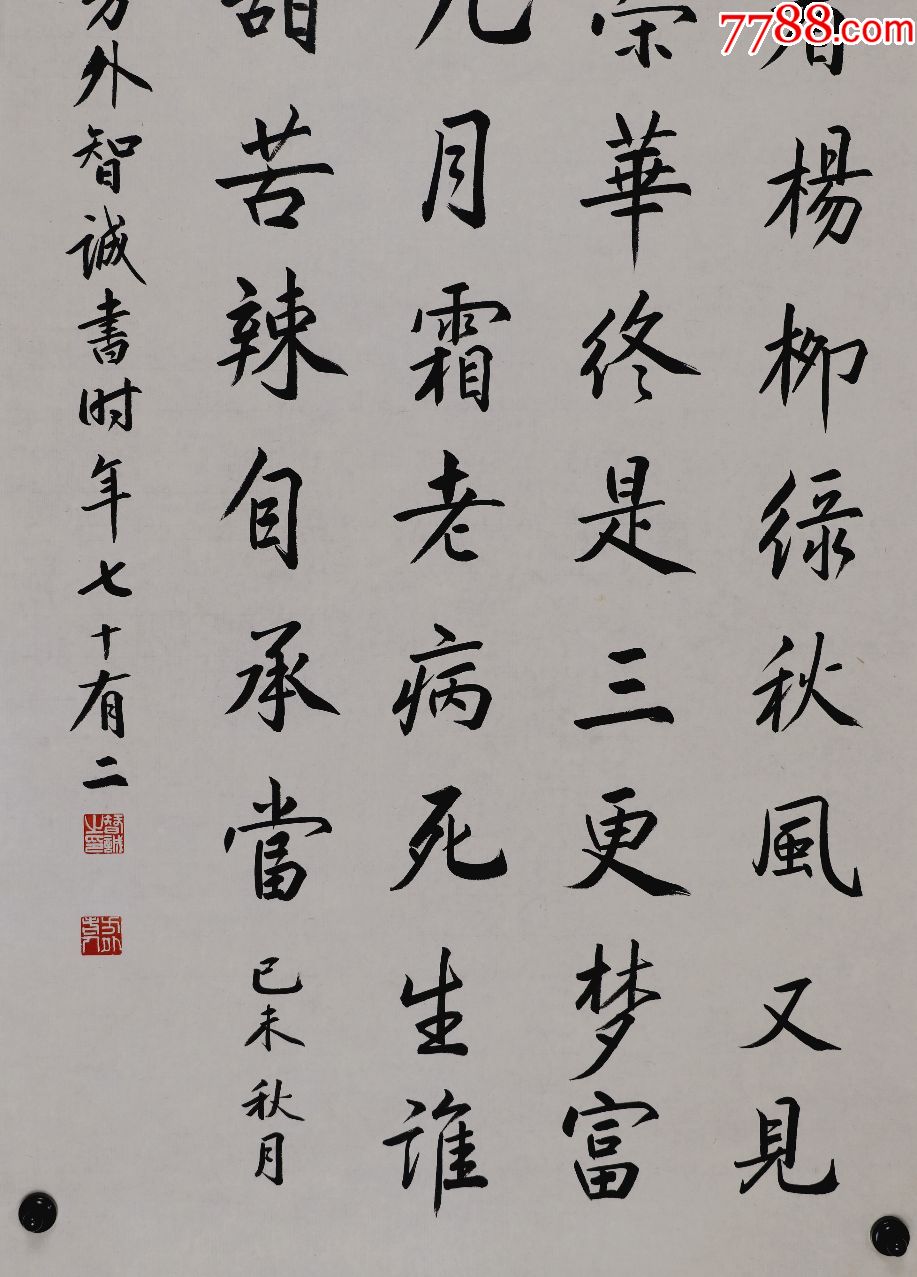 7788.com
看楊柳綠秋風又見
華終是三更梦富
九月霜老病死生誰
甜苦辣自承當己未秋月
方外智誠書时年七十有二
智誠之印